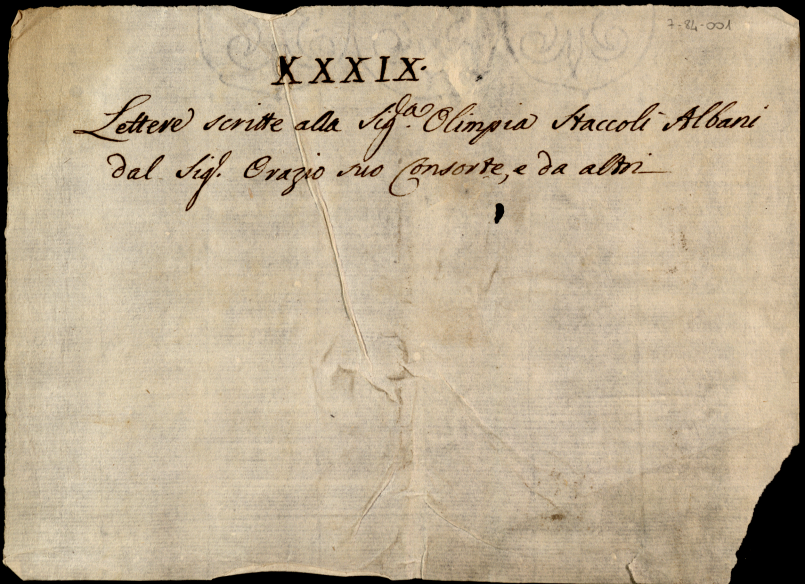 7-84-001
XXXIX.
Lettere scritte alla Sig.ª Olimpia Staccoli Albani
dal Sig. Orazio suo Consorte, e da altri